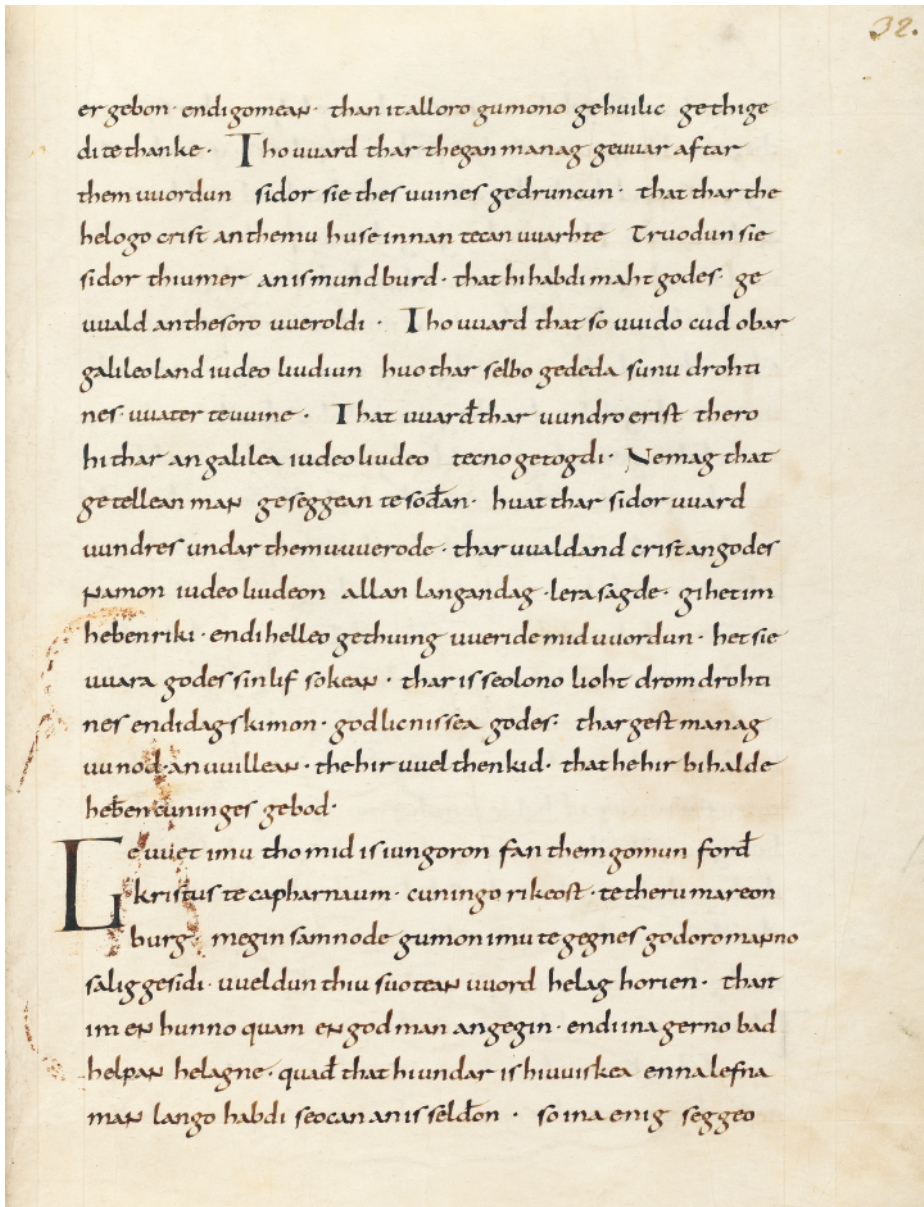 32.
er gebon · endi gomean · than it alloro gumono gehuilic gethige
di te thanke · Tho uuard thar thegan manag geuuar aftar
them uuordun sidor sie thes uuines gedruncun · that thar the
helogo crist an themu huse innan tecan uuarhte Truodun sie
sidor thiu mer an is mundburd · that hi habdi maht godes · ge
uuald an thesoro uueroldi · Tho uuard that so uuido cud obar
galileo land iudeo liudiun huo thar selbo gededa sunu drohti
nes · uuater te uuine · That uuarđ thar uundro erist thero
hi thar an galilea iudeo liudeo tecno getogdi · Ne mag that
getellean man geseggean te sođan · huat thar sidor uuard
uundres undar themu uuerode · thar uualdand crist an godes
namon iudeo liudeon allan langan dag · lera sagde · gihet im
hebenriki · endi helleo gethuing uueride mid uuordun · het sie
uuara godes sinlif sokean · thar is seolono lioht drom drohti
nes endi dagskimon · godlicnissea godes · thar gest manag
uunod · an uuillean · the hir uuel thenkid · that he hir bihalde
heƀencuninges gebod ·
Geuuet imu tho mid is iungoron fan them gomun forđ
kristus te capharnaum · cuningo rikeost · te theru mareon
burg · megin samnode gumon imu tegegnes godoro manno
salig gesidi · uueldun thiu suotean uuord helag horien · thar
im en hunno quam en god man angegin · endi ina gerno bad
helpan helagne · quađ that hi undar is hiuuiskea enna lefna
man lango habdi seocan an is selđon · so ina enig seggeo